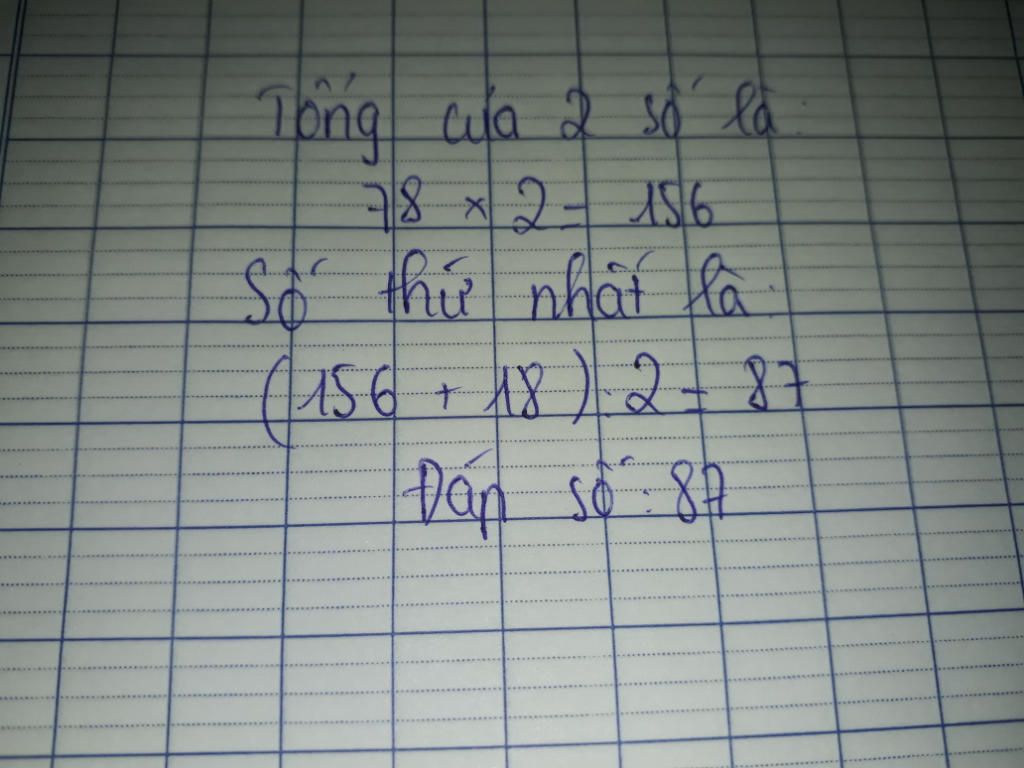 Tổng của 2 số là:
78 x 2 = 156
Số thứ nhất là:
(156 + 18) : 2 = 87
Đáp số : 87